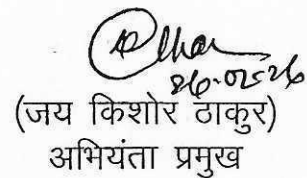 26-02-26
(जय किशोर ठाकुर)
अभियंता प्रमुख